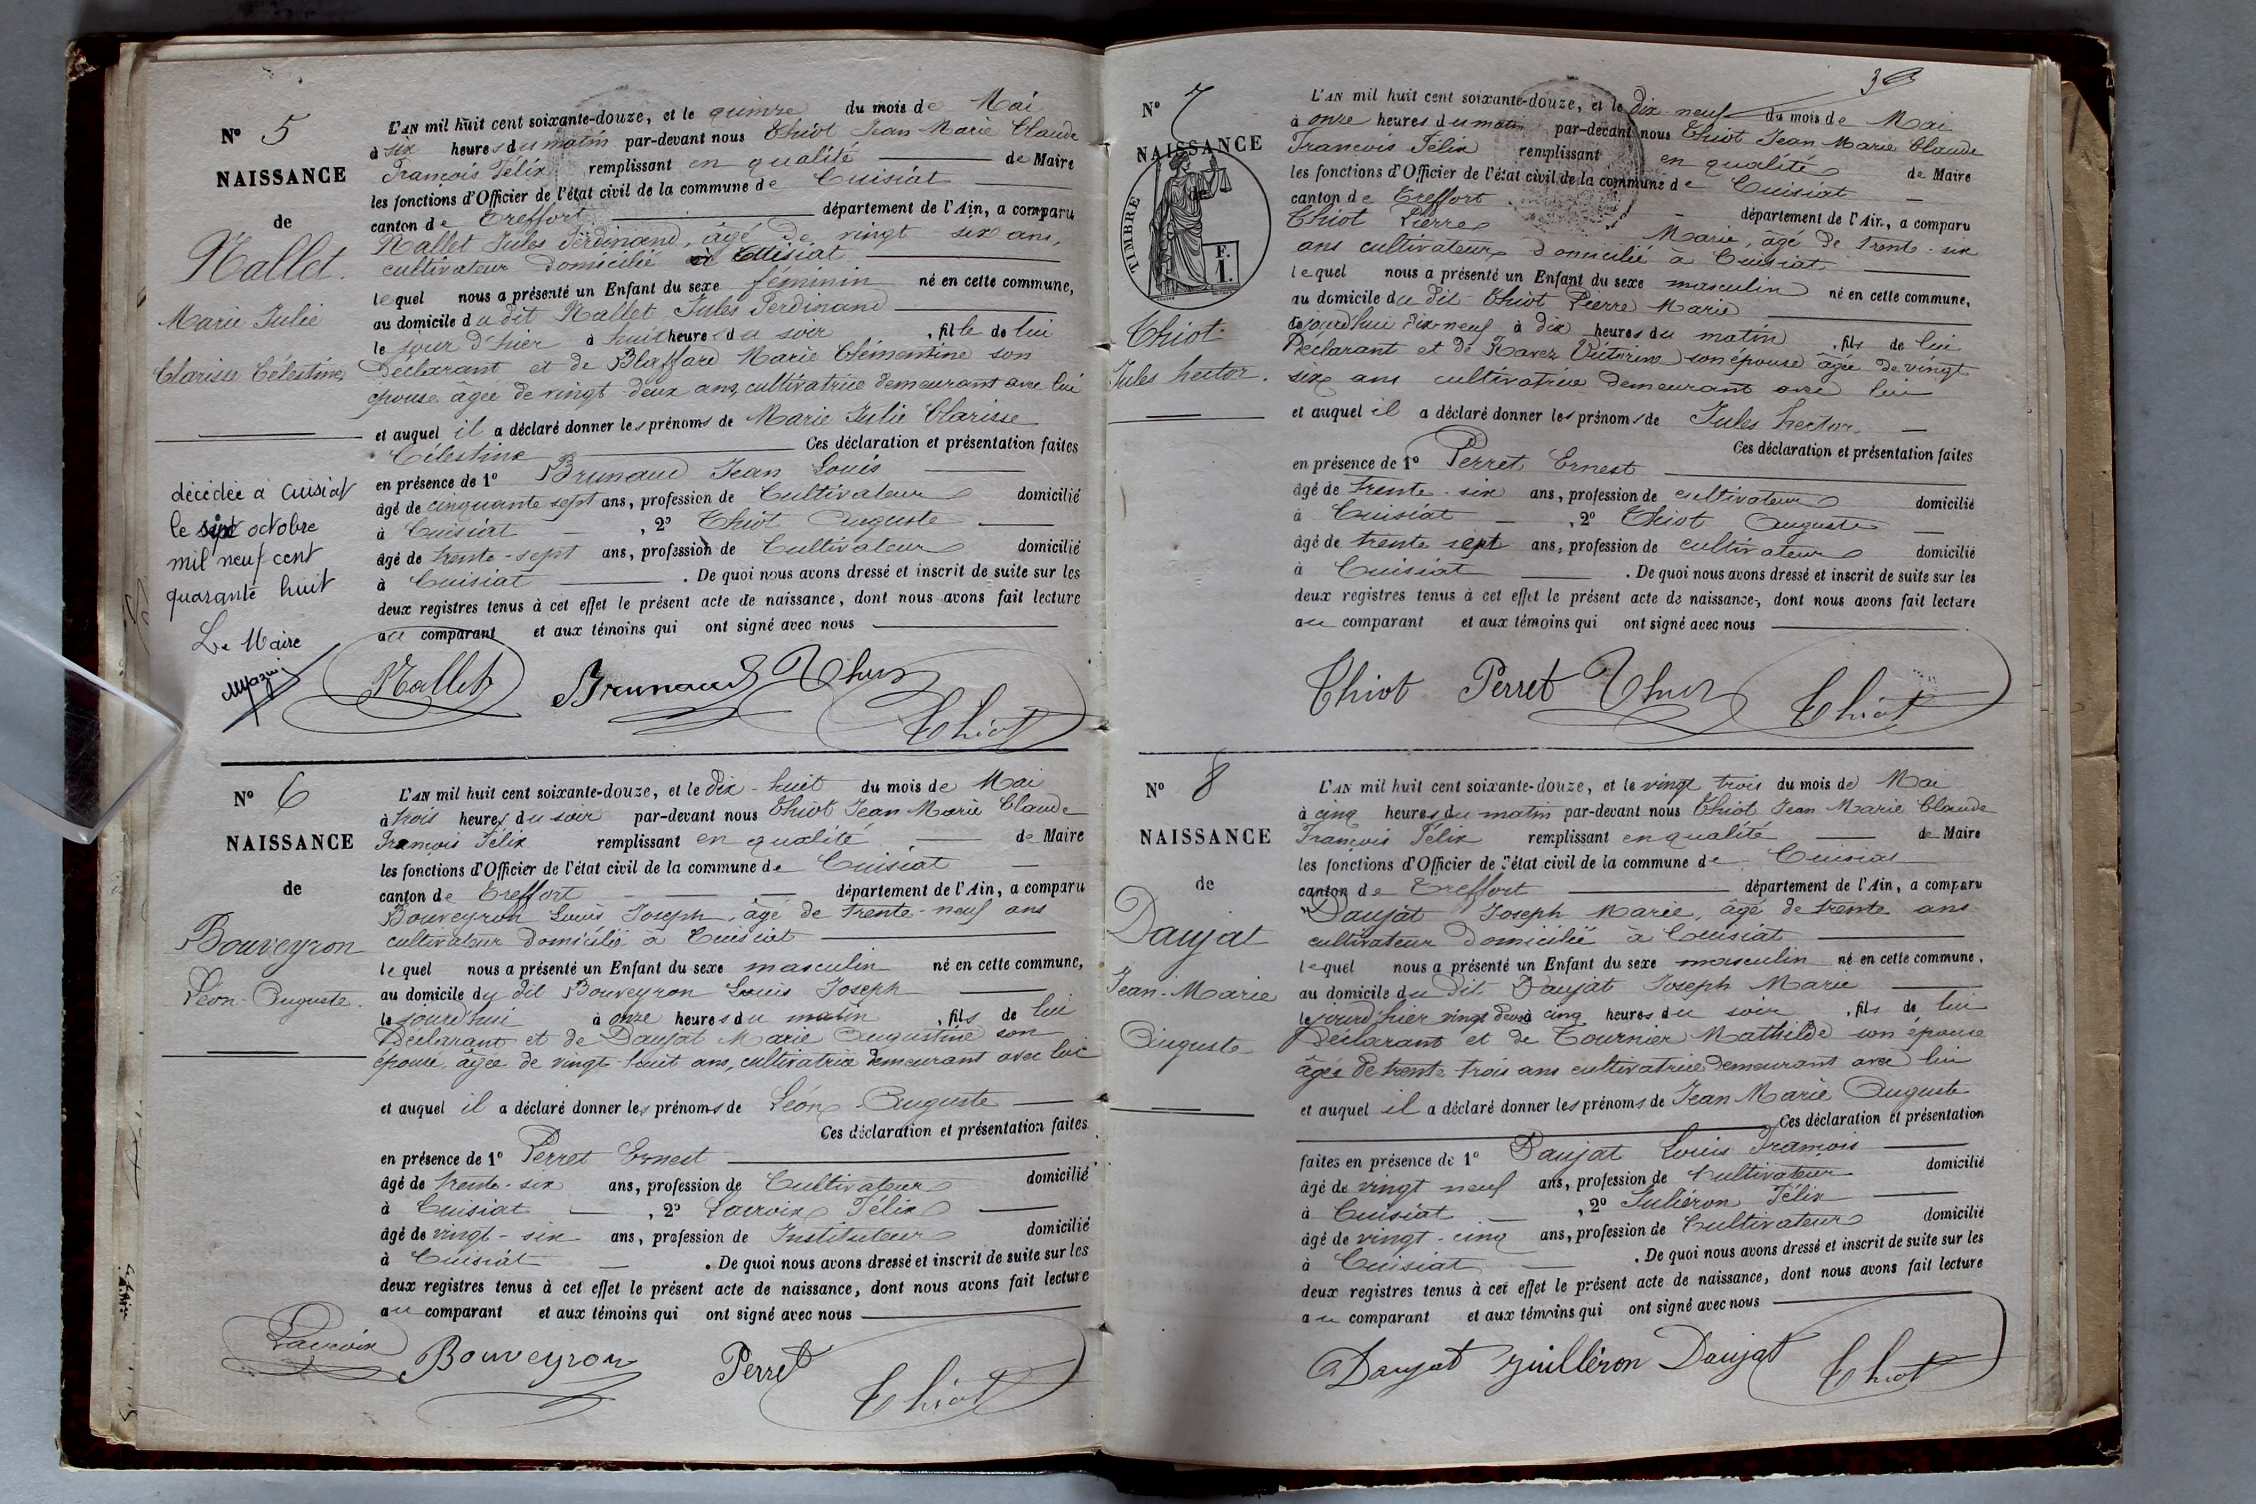 N° 5
NAISSANCE
de
Nallet.
Marie Julie
Clarisse Célestine
décédée à Cuisiat
le six octobre
mil neuf cent
quarante huit
Le Maire
L'AN mil huit cent soixante-douze, et le quinze du mois de Mai
à six heures du matin par-devant nous Thiot Jean Marie Claude
François Félix remplissant en qualité de Maire
les fonctions d'Officier de l'état civil de la commune de Cuisiat
canton de Treffort département de l'Ain, a comparu
Nallet Jules Ferdinand, âgé de vingt six ans,
cultivateur domicilié à Cuisiat
lequel nous a présenté un Enfant du sexe féminin né en cette commune,
au domicile du dit Nallet Jules Ferdinand
le jour d'hier à huit heures du soir, fille de lui
Déclarant et de Marie Clémentine son
épouse âgée de vingt-deux ans, cultivatrice demeurant avec lui
et auquel il a déclaré donner les prénoms de Marie Julie Clarisse
Célestine Ces déclaration et présentation faites
en présence de 1° Brunaud Jean Louis
âgé de cinquante sept ans, profession de Cultivateur domicilié
à Cuisiat, 2° Thiot Auguste
âgé de trente-sept ans, profession de Cultivateur domicilié
à Cuisiat. De quoi nous avons dressé et inscrit de suite sur les
deux registres tenus à cet effet le présent acte de naissance, dont nous avons fait lecture
au comparant et aux témoins qui ont signé avec nous
Nallet Brunaud Thiot
Thiot
N° 6
NAISSANCE
de
Bouveyron
Léon-Auguste.
L'AN mil huit cent soixante-douze, et le dix-huit du mois de Mai
à trois heures du soir par-devant nous Thiot Jean Marie Claude
François Félix remplissant en qualité de Maire
les fonctions d'Officier de l'état civil de la commune de Cuisiat
canton de Treffort département de l'Ain, a comparu
Bouveyron Louis Joseph, âgé de trente-neuf ans
cultivateur domicilié à Cuisiat
lequel nous a présenté un Enfant du sexe masculin né en cette commune,
au domicile du dit Bouveyron Louis Joseph
le jourd'hui à onze heures du matin, fils de lui
Déclarant et de Daujat Marie Augustine son
épouse, âgée de vingt-huit ans, cultivatrice demeurant avec lui
et auquel il a déclaré donner les prénoms de Léon Auguste
Ces déclaration et présentation faites
en présence de 1° Perret Ernest
âgé de trente-six ans, profession de Cultivateur domicilié
à Cuisiat, 2° Lacroix Félix
âgé de vingt-six ans, profession de Instituteur domicilié
à Cuisiat. De quoi nous avons dressé et inscrit de suite sur les
deux registres tenus à cet effet le présent acte de naissance, dont nous avons fait lecture
au comparant et aux témoins qui ont signé avec nous
Lacroix Bouveyron Perret
Thiot
N° 7
NAISSANCE
TIMBRE
F.
1.
Thiot
Jules hector.
L'AN mil huit cent soixante-douze, et le dix-neuf du mois de Mai
à onze heures du matin par-devant nous Thiot Jean Marie Claude
François Félix remplissant en qualité de Maire
les fonctions d'Officier de l'état civil de la commune de Cuisiat
canton de Treffort département de l'Ain, a comparu
Thiot Pierre Marie, âgé de trente-six
ans cultivateur domicilié à Cuisiat
lequel nous a présenté un Enfant du sexe masculin né en cette commune,
au domicile du dit Thiot Pierre Marie
cejourd'hui dix-neuf à dix heures du matin, fils de lui
Déclarant et de son épouse âgée de vingt
six ans cultivatrice demeurant avec lui
et auquel il a déclaré donner les prénoms de Jules hector
Ces déclaration et présentation faites
en présence de 1° Perret Ernest
âgé de trente-six ans, profession de cultivateur domicilié
à Cuisiat, 2° Thiot Auguste
âgé de trente sept ans, profession de cultivateur domicilié
à Cuisiat. De quoi nous avons dressé et inscrit de suite sur les
deux registres tenus à cet effet le présent acte de naissance, dont nous avons fait lecture
au comparant et aux témoins qui ont signé avec nous
Thiot Perret Thiot Thiot
N° 8
NAISSANCE
de
Daujat
Jean-Marie
Auguste
L'AN mil huit cent soixante-douze, et le vingt trois du mois de Mai
à cinq heures du matin par-devant nous Thiot Jean Marie Claude
François Félix remplissant en qualité de Maire
les fonctions d'Officier de l'état civil de la commune de Cuisiat
canton de Treffort département de l'Ain, a comparu
Daujat Joseph Marie, âgé de trente ans
cultivateur domicilié à Cuisiat
lequel nous a présenté un Enfant du sexe masculin né en cette commune,
au domicile du dit Daujat Joseph Marie
le jourd'hier vingt deux à cinq heures du soir, fils de lui
Déclarant et de Tournier Mathilde son épouse
âgée de trente trois ans cultivatrice demeurant avec lui
et auquel il a déclaré donner les prénoms de Jean Marie Auguste
Ces déclaration et présentation
faites en présence de 1° Daujat Louis François
âgé de vingt neuf ans, profession de Cultivateur domicilié
à Cuisiat, 2° Juliéron Félix
âgé de vingt-cinq ans, profession de Cultivateur domicilié
à Cuisiat. De quoi nous avons dressé et inscrit de suite sur les
deux registres tenus à cet effet le présent acte de naissance, dont nous avons fait lecture
au comparant et aux témoins qui ont signé avec nous
Daujat Juilléron Daujat Thiot